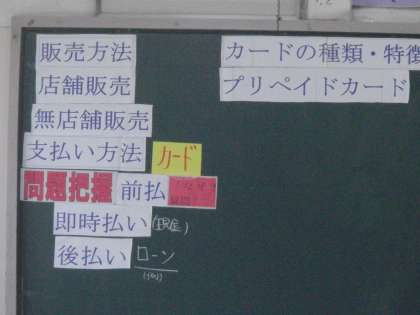 販売方法
店舗販売
無店舗販売
支払い方法 カード
問題把握 前払
即時払い (現金)
後払い ローン
カードの種類・特徴
プリペイドカード